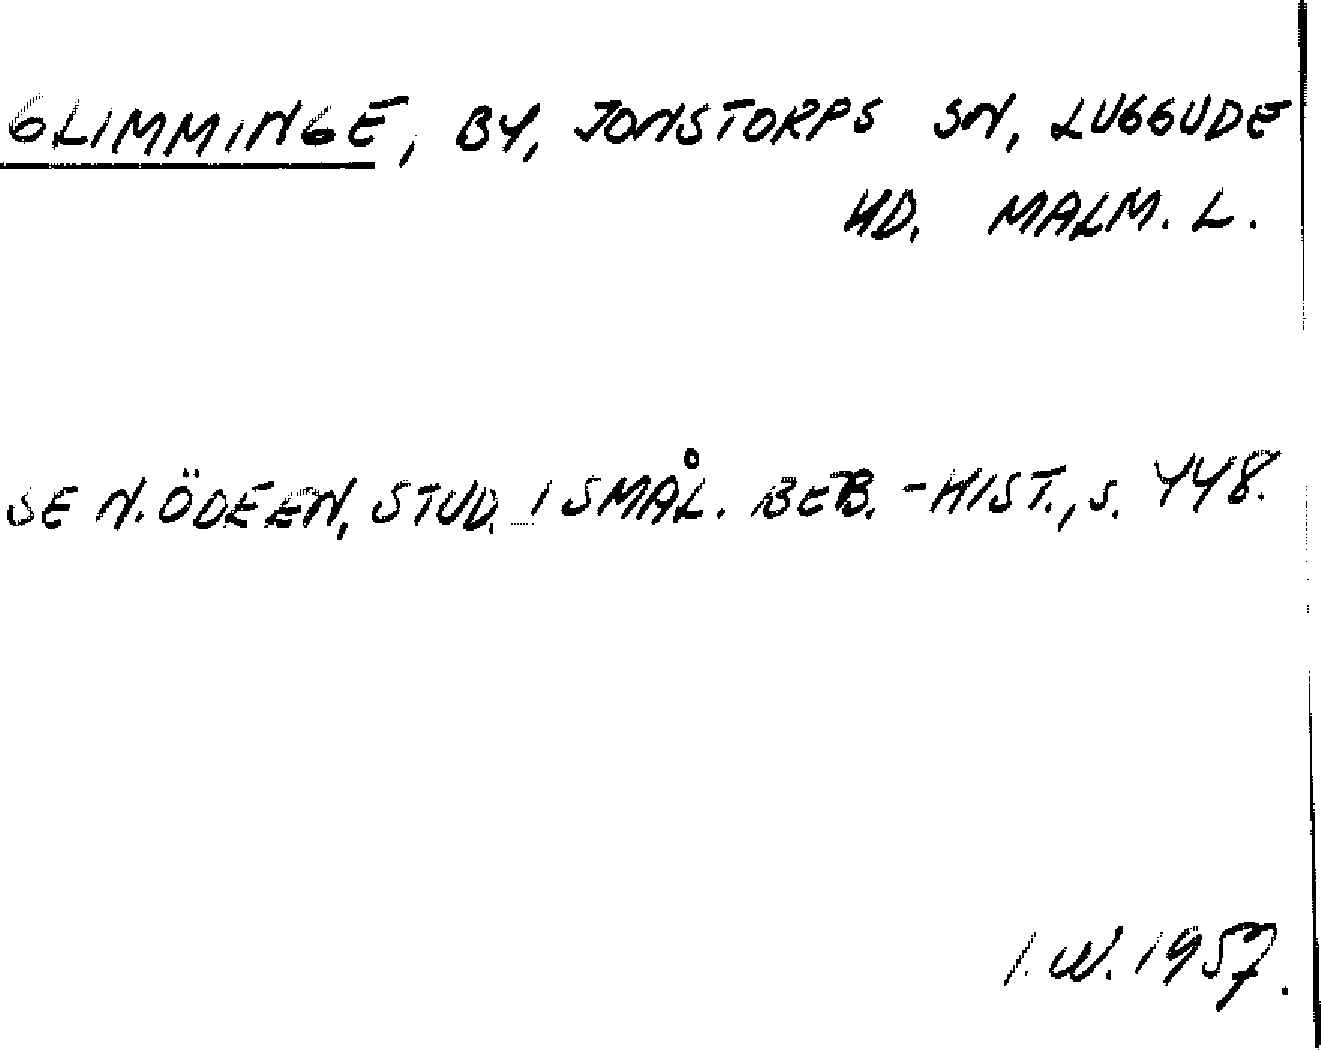 GLIMMINGE, BY, JONSTORPS SN, LUGGUDE
HD. MALM. L.
SE N. ÖDEEN, STUD. I SMÅL. BEB.-HIST., S. 448.
I. W. 1957.